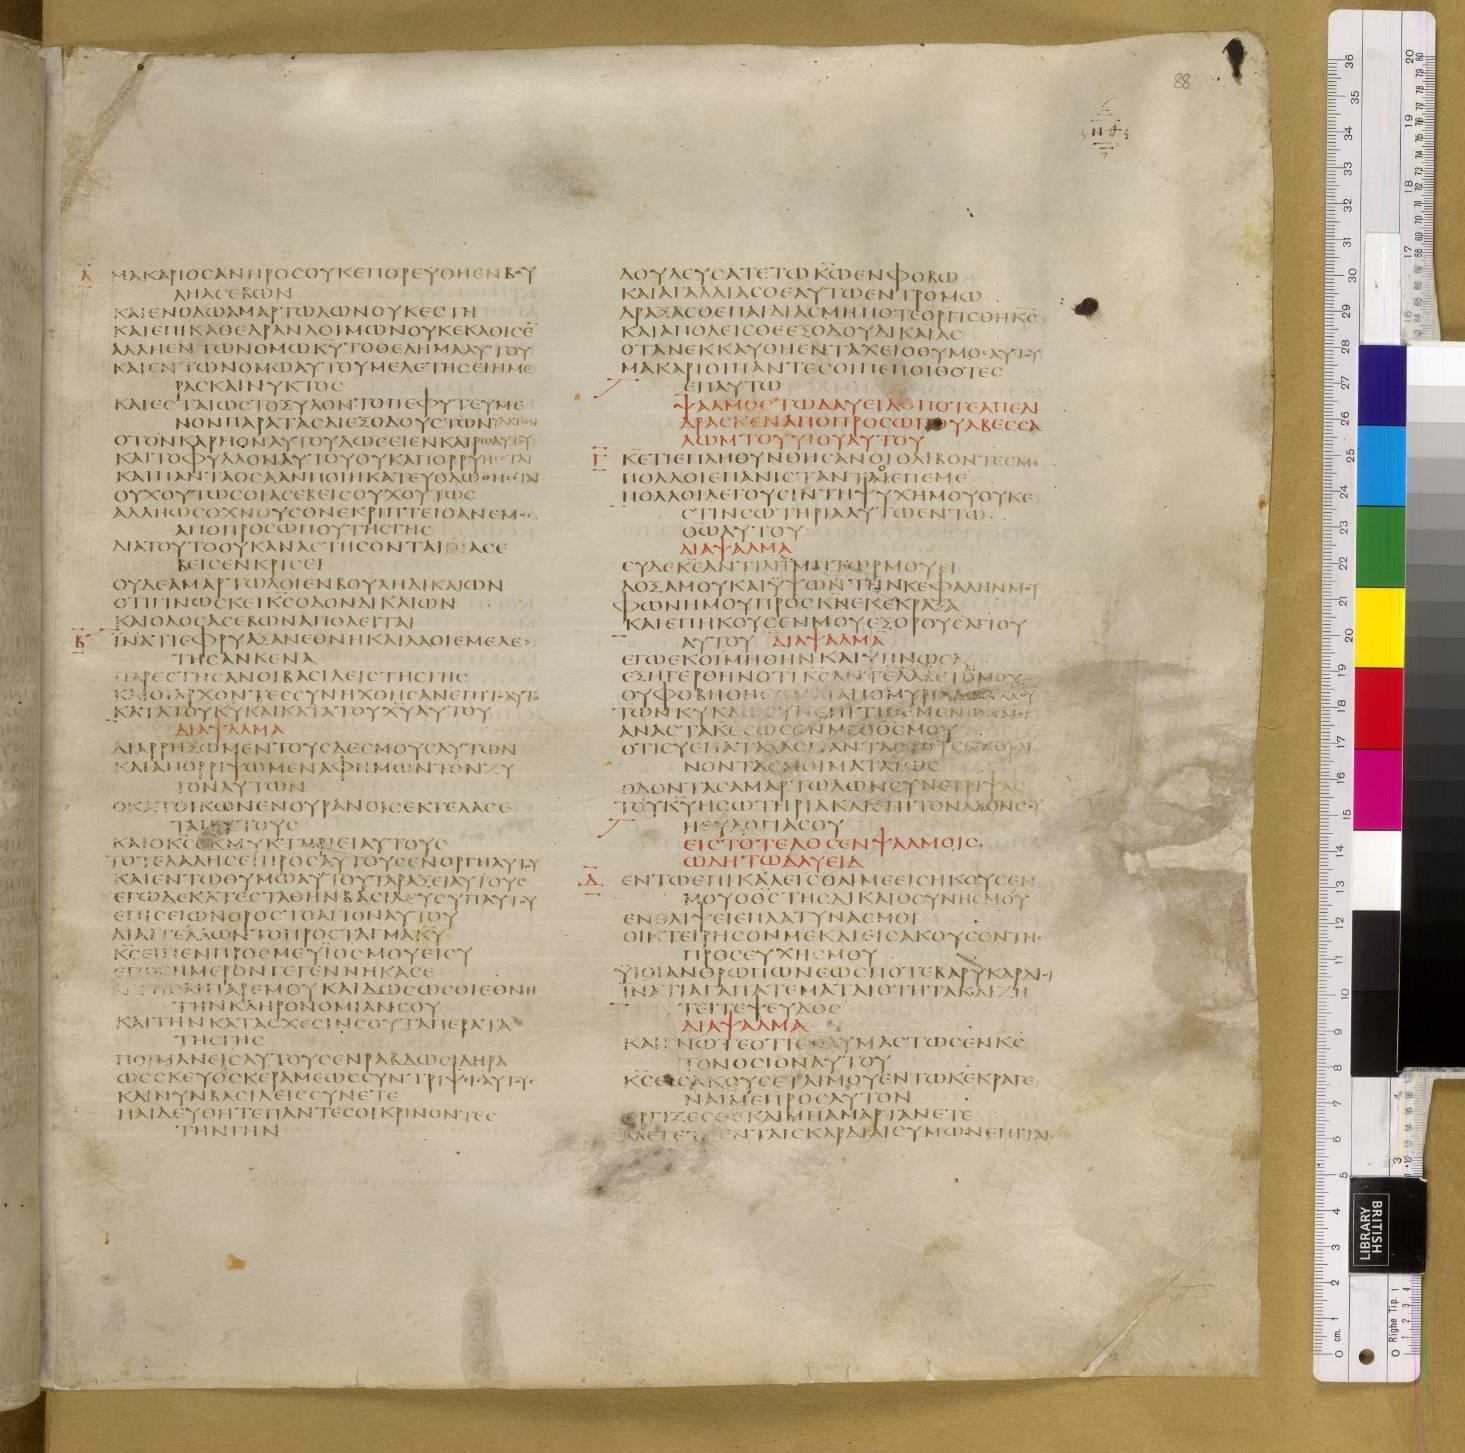 88
ΝΘ
Α
ΜΑΚΑΡΙΟCΑΝΗΡΟCΟΥΚΕΠΟΡΕΥΘΗΕΝΒΟΥ
ΛΗΑCΕΒΩΝ
ΚΑΙΕΝΟΔΩΑΜΑΡΤΩΛΩΝΟΥΚΕCΤΗ
ΚΑΙΕΠΙΚΑΘΕΔΡΑΝΛΟΙΜΩΝΟΥΚΕΚΑΘΙCΕ
ΑΛΛΗΕΝΤΩΝΟΜΩΚΥΤΟΘΕΛΗΜΑΑΥΤΟΥ
ΚΑΙΕΝΤΩΝΟΜΩΑΥΤΟΥΜΕΛΕΤΗCΕΙΗΜΕ
ΡΑCΚΑΙΝΥΚΤΟC
ΚΑΙΕCΤΑΙΩCΤΟΞΥΛΟΝΤΟΠΕΦΥΤΕΥΜΕ
ΝΟΝΠΑΡΑΤΑCΔΙΕΞΟΔΟΥCΤΩΝΥΔΑΤΩΝ
ΟΤΟΝΚΑΡΠΟΝΑΥΤΟΥΔΩCΕΙΕΝΚΑΙΡΩΑΥΤΟΥ
ΚΑΙΤΟΦΥΛΛΟΝΑΥΤΟΥΟΥΚΑΠΟΡΡΥΗCΕΤΑΙ
ΚΑΙΠΑΝΤΑΟCΑΑΝΠΟΙΗΚΑΤΕΥΟΔΩΘΗCΕΤΑΙ
ΟΥΧΟΥΤΩCΟΙΑCΕΒΕΙCΟΥΧΟΥΤΩC
ΑΛΛΗΩCΟΧΝΟΥCΟΝΕΚΡΙΠΤΕΙΟΑΝΕΜΟC
ΑΠΟΠΡΟCΩΠΟΥΤΗCΓΗC
ΔΙΑΤΟΥΤΟΟΥΚΑΝΑCΤΗCΟΝΤΑΙΟΙΑCΕ
ΒΕΙCΕΝΚΡΙCΕΙ
ΟΥΔΕΑΜΑΡΤΩΛΟΙΕΝΒΟΥΛΗΔΙΚΑΙΩΝ
ΟΤΙΓΙΝΩCΚΕΙΚCΟΔΟΝΔΙΚΑΙΩΝ
ΚΑΙΟΔΟCΑCΕΒΩΝΑΠΟΛΕΙΤΑΙ
Β
ΪΝΑΤΙΕΦΡΥΑΞΑΝΕΘΝΗΚΑΙΛΑΟΙΕΜΕΛΕ
ΤΗCΑΝΚΕΝΑ
ΠΑΡΕCΤΗCΑΝΟΙΒΑCΙΛΕΙCΤΗCΓΗC
ΚΑΙΟΙΑΡΧΟΝΤΕCCΥΝΗΧΘΗCΑΝΕΠΙΤΟΑΥΤΟ
ΚΑΤΑΤΟΥΚΥΚΑΙΚΑΤΑΤΟΥΧΥΑΥΤΟΥ
ΔΙΑΨΑΛΜΑ
ΔΙΑΡΡΗΞΩΜΕΝΤΟΥCΔΕCΜΟΥCΑΥΤΩΝ
ΚΑΙΑΠΟΡΡΙΨΩΜΕΝΑΦΗΜΩΝΤΟΝΖΥ
ΓΟΝΑΥΤΩΝ
ΟΚΑΤΟΙΚΩΝΕΝΟΥΡΑΝΟΙCΕΚΓΕΛΑCΕ
ΤΑΙΑΥΤΟΥC
ΚΑΙΟΚCΕΚΜΥΚΤΗΡΙΕΙΑΥΤΟΥC
ΤΟΤΕΛΑΛΗCΕΙΠΡΟCΑΥΤΟΥCΕΝΟΡΓΗΑΥΤΟΥ
ΚΑΙΕΝΤΩΘΥΜΩΑΥΤΟΥΤΑΡΑΞΕΙΑΥΤΟΥC
ΕΓΩΔΕΚΑΤΕCΤΑΘΗΝΒΑCΙΛΕΥCΥΠΑΥΤΟΥ
ΕΠΙCΕΙΩΝΟΡΟCΤΟΑΓΙΟΝΑΥΤΟΥ
ΔΙΑΓΓΕΛΛΩΝΤΟΠΡΟCΤΑΓΜΑΚΥ
ΚCΕΙΠΕΝΠΡΟCΜΕΥΪΟCΜΟΥΕΙCΥ
ΕΓΩCΗΜΕΡΟΝΓΕΓΕΝΝΗΚΑCΕ
ΑΙΤΗCΑΙΠΑΡΕΜΟΥΚΑΙΔΩCΩCΟΙΕΘΝΗ
ΤΗΝΚΛΗΡΟΝΟΜΙΑΝCΟΥ
ΚΑΙΤΗΝΚΑΤΑCΧΕCΙΝCΟΥΤΑΠΕΡΑΤΑ
ΤΗCΓΗC
ΠΟΙΜΑΝΕΙCΑΥΤΟΥCΕΝΡΑΒΔΩCΙΔΗΡΑ
ΩCCΚΕΥΟCΚΕΡΑΜΕΩCCΥΝΤΡΙΨΕΙCΑΥΤΟΥC
ΚΑΙΝΥΝΒΑCΙΛΕΙCCΥΝΕΤΕ
ΠΑΙΔΕΥΘΗΤΕΠΑΝΤΕCΟΙΚΡΙΝΟΝΤΕC
ΤΗΝΓΗΝ
ΔΟΥΛΕΥCΑΤΕΤΩΚΩΕΝΦΟΒΩ
ΚΑΙΑΓΑΛΛΙΑCΘΕΑΥΤΩΕΝΤΡΟΜΩ
ΔΡΑΞΑCΘΕΠΑΙΔΙΑCΜΗΠΟΤΕΟΡΓΙCΘΗΚC
ΚΑΙΑΠΟΛΕΙCΘΕΕΞΟΔΟΥΔΙΚΑΙΑC
ΟΤΑΝΕΚΚΑΥΘΗΕΝΤΑΧΕΙΟΘΥΜΟCΑΥΤΟΥ
ΜΑΚΑΡΙΟΙΠΑΝΤΕCΟΙΠΕΠΟΙΘΟΤΕC
ΕΠΑΥΤΩ
ΨΑΛΜΟCΤΩΔΑΥΕΙΔΟΠΟΤΕΑΠΕΔΙ
ΔΡΑCΚΕΝΑΠΟΠΡΟCΩΠΟΥΑΒΕCCΑ
ΛΩΜΤΟΥΥΙΟΥΑΥΤΟΥ
Γ
ΚΕΤΙΕΠΛΗΘΥΝΘΗCΑΝΟΙΘΛΙΒΟΝΤΕCΜΕ
ΠΟΛΛΟΙΕΠΑΝΙCΤΑΝΤΑΙΕΠΕΜΕ
ΠΟΛΛΟΙΛΕΓΟΥCΙΝΤΗΨΥΧΗΜΟΥΟΥΚΕ
CΤΙΝCΩΤΗΡΙΑΑΥΤΩΕΝΤΩ
ΘΩΑΥΤΟΥ
ΔΙΑΨΑΛΜΑ
CΥΔΕΚΕΑΝΤΙΛΗΜΠΤΩΡΜΟΥΕΙ
ΔΟΞΑΜΟΥΚΑΙΫΨΩΝΤΗΝΚΕΦΑΛΗΝΜΟΥ
ΦΩΝΗΜΟΥΠΡΟCΚΝΕΚΕΚΡΑΞΑ
ΚΑΙΕΠΗΚΟΥCΕΝΜΟΥΕΞΟΡΟΥCΑΓΙΟΥ
ΑΥΤΟΥ ΔΙΑΨΑΛΜΑ
ΕΓΩΕΚΟΙΜΗΘΗΝΚΑΙΫΠΝΩCΑ
ΕΞΗΓΕΡΘΗΝΟΤΙΚCΑΝΤΕΛΑΒΕΤΟΜΟΥ
ΟΥΦΟΒΗΘΗCΟΜΑΙΑΠΟΜΥΡΙΑΔΩΝΛΑΟΥ
ΤΩΝΚΥΚΛΩCΥΝΕΠΙΤΙΘΕΜΕΝΩΝΜΟΙ
ΑΝΑCΤΑΚΕCΩCΟΝΜΕΟΘCΜΟΥ
ΟΤΙCΥΕΠΑΤΑΞΑCΠΑΝΤΑCΤΟΥCΕΧΘΡΑΙ
ΝΟΝΤΑCΜΟΙΜΑΤΑΙΩC
ΟΔΟΝΤΑCΑΜΑΡΤΩΛΩΝCΥΝΕΤΡΙΨΑC
ΤΟΥΚΥΗCΩΤΗΡΙΑΚΑΙΕΠΙΤΟΝΛΑΟΝCΟΥ
ΗΕΥΛΟΓΙΑCΟΥ
ΕΙCΤΟΤΕΛΟCΕΝΨΑΛΜΟΙC
ΩΔΗΤΩΔΑΥΕΙΔ
Δ
ΕΝΤΩΕΠΙΚΑΛΕΙCΘΑΙΜΕΕΙCΗΚΟΥCΕΝ
ΜΟΥΟΘCΤΗCΔΙΚΑΙΟCΥΝΗCΜΟΥ
ΕΝΘΛΙΨΕΙΕΠΛΑΤΥΝΑCΜΟΙ
ΟΙΚΤΕΙΡΗCΟΝΜΕΚΑΙΕΙCΑΚΟΥCΟΝΤΗC
ΠΡΟCΕΥΧΗCΜΟΥ
ΫΙΟΙΑΝΘΡΩΠΩΝΕΩCΠΟΤΕΒΑΡΥΚΑΡΔΙΟΙ
ΪΝΑΤΙΑΓΑΠΑΤΕΜΑΤΑΙΟΤΗΤΑΚΑΙΖΗ
ΤΕΙΤΕΨΕΥΔΟC
ΔΙΑΨΑΛΜΑ
ΚΑΙΓΝΩΤΕΟΤΙΕΘΑΥΜΑCΤΩCΕΝΚC
ΤΟΝΟCΙΟΝΑΥΤΟΥ
ΚCΕΙCΑΚΟΥCΕΤΑΙΜΟΥΕΝΤΩΚΕΚΡΑΓΕ
ΝΑΙΜΕΠΡΟCΑΥΤΟΝ
ΟΡΓΙΖΕCΘΕΚΑΙΜΗΑΜΑΡΤΑΝΕΤΕ
ΛΕΓΕΤΕΕΝΤΑΙCΚΑΡΔΙΑΙCΥΜΩΝΕΠΙΤΑΙC
BRITISH
LIBRARY
cm.
Righe Tip. 1